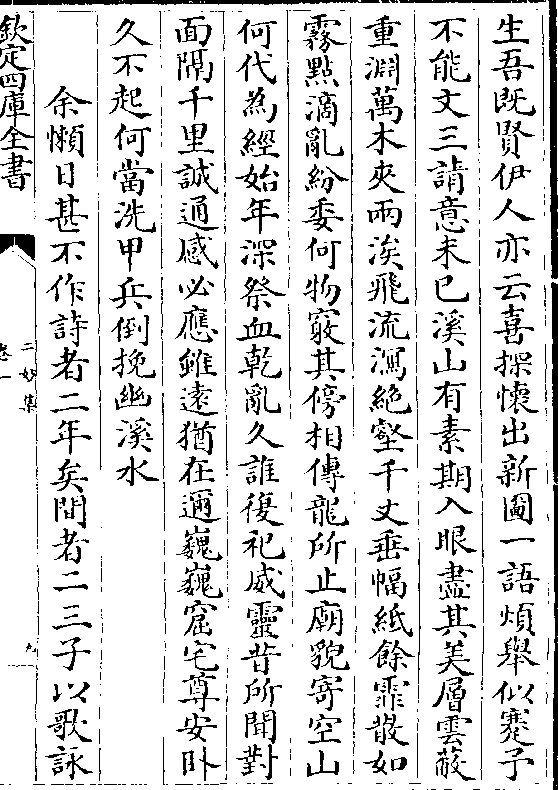 生吾既賢伊人亦云喜探懷出新圖一語煩舉似蹇予
不能文三請意未已溪山有素期入眼盡其美層雲蔽
重淵萬木夾兩涘飛流瀉絶壑千丈垂幅紙餘霏散如
霧點滴亂紛委何物竅其傍相傳龍所止廟貌寄空山
何代為經始年深祭血乾亂久誰復祀威靈昔所聞對
面隔千里誠通感必應雖遠猶在邇巍巍窟宅尊安卧
久不起何當洗甲兵倒挽幽溪水
余懶日甚不作詩者二年矣間者二三子以歌詠
欽定四庫全書
二妙集
卷一
九